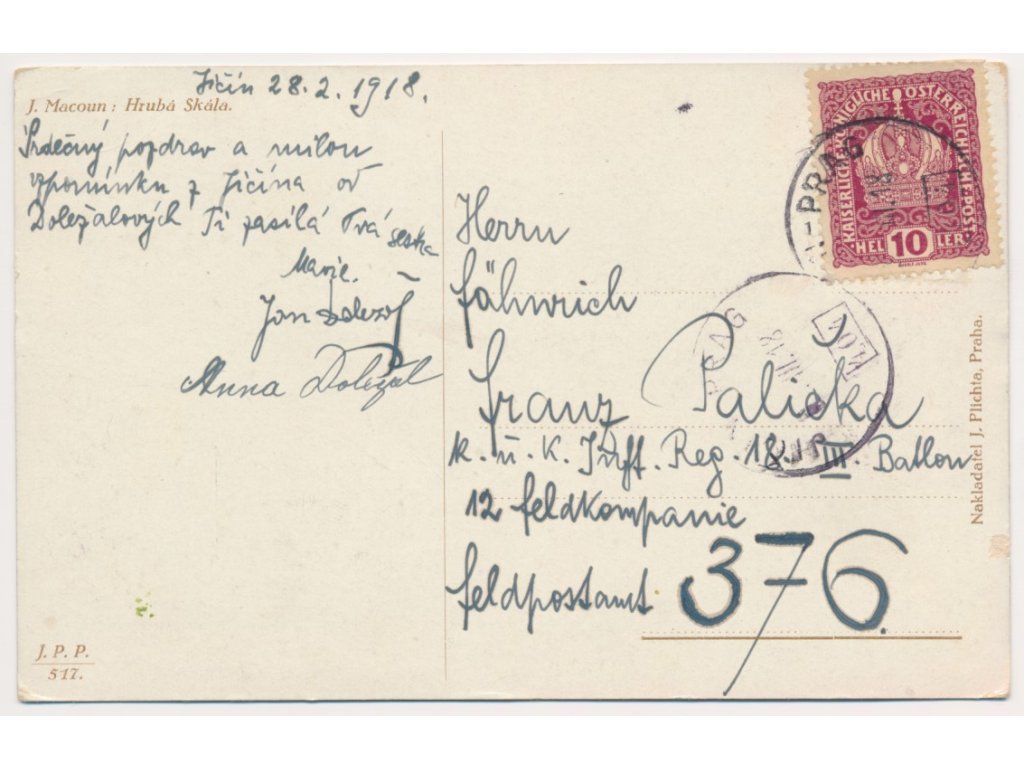 Jičín 28.2.1918.
J. Macoun: Hrubá Skála.
Srdečný pozdrav a milou
vzpomínku z Jičína od
Doležalových Ti zasílá Tvá sestra
Marie.
Jan Doležal
Anna Doležal
J. P. P.
517.
KAISERLICHE KÖNIGLICHE ÖSTERREICHISCHE POST
HEL 10 LER
PRAG
Herrn
Fähnrich
Franz Palicka
k. u. K. Inft. Reg. 18. III. Batlon
12 Feldkompanie
Feldpostamt 376
Nakladatel J. Plichta, Praha.